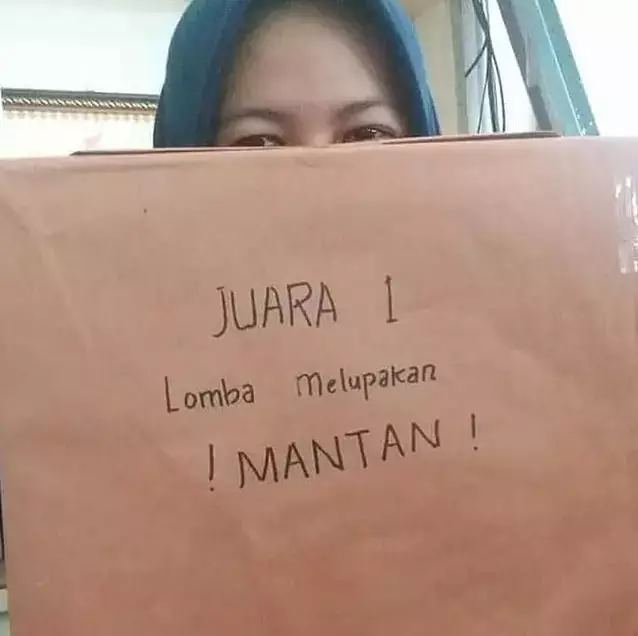 JUARA 1
Lomba melupakan
! MANTAN !